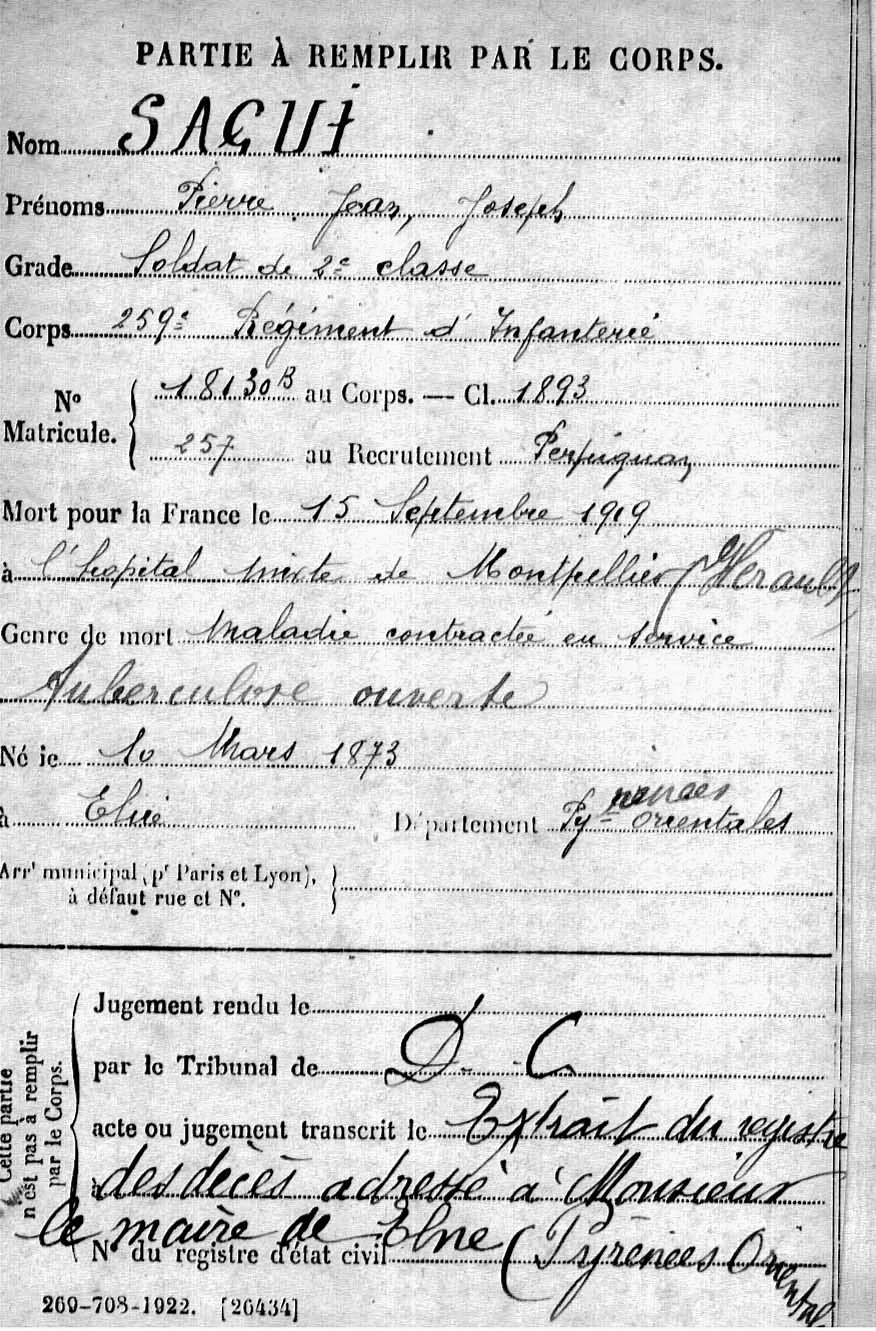 PARTIE À REMPLIR PAR LE CORPS.
Nom SAGUI
Prénoms Pierre, Jean, Joseph
Grade Soldat de 2e classe
Corps 259e Régiment d'Infanterie
No Matricule. 18130B au Corps. — Cl. 1893
257 au Recrutement Perpignan
Mort pour la France le 15 Septembre 1919
à l'hopital mixte de Montpellier (Herault)
Genre de mort Maladie contractée en service
Tuberculose ouverte
Né le 10 Mars 1873
à Elne Département Pyrénées Orientales
Arrt municipal (pr Paris et Lyon),
à défaut rue et No.
Cette partie
n'est pas à remplir
par le Corps.
Jugement rendu le
par le Tribunal de D. C
acte ou jugement transcrit le Extrait du registre
à des décès adressé à Monsieur
le maire de Elne (Pyrénées Orientales
No du registre d'état civil
260-708-1922. [26434]